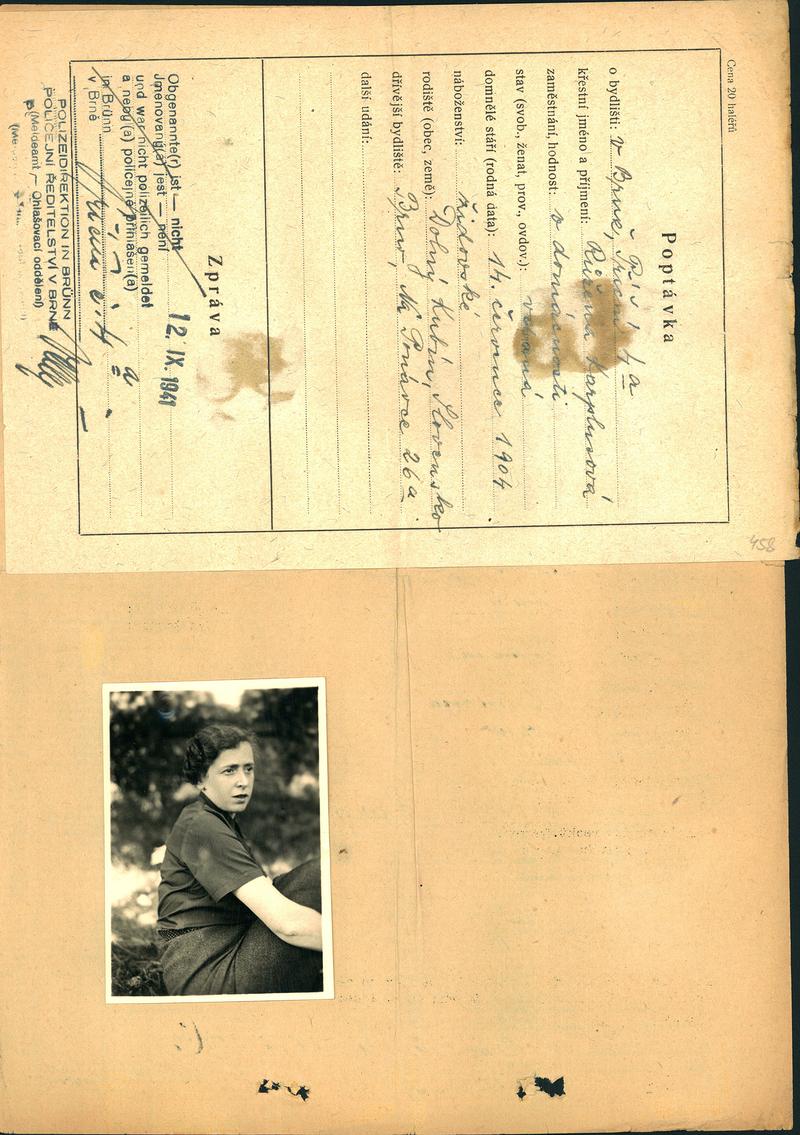 Cena 20 haléřů
Poptávka
o bydlišti: v Brně, 4a
křestní jméno a příjmení: Růžena Karplusová
zaměstnání, hodnost: v domácnosti
stav (svob., ženat, prov., ovdov.): vdaná
domnělé stáří (rodná data): 14. července 1904.
náboženství: židovské
rodiště (obec, země): Dolný Kubín, Slovensko
dřívější bydliště: Brno, Na Ponávce 26a.
další udání:
458
Zpráva
Obgenannte(r) ist — nicht
Jmenovaný(á) jest — není
12. IX. 1941
und war nicht polizeilich gemeldet
a nebyl(a) policejně přihlášen(a)
in Brünn
v Brně
POLIZEIDIREKTION IN BRÜNN
POLICEJNÍ ŘEDITELSTVÍ V BRNĚ
(Meldeamt — Ohlašovací oddělení)